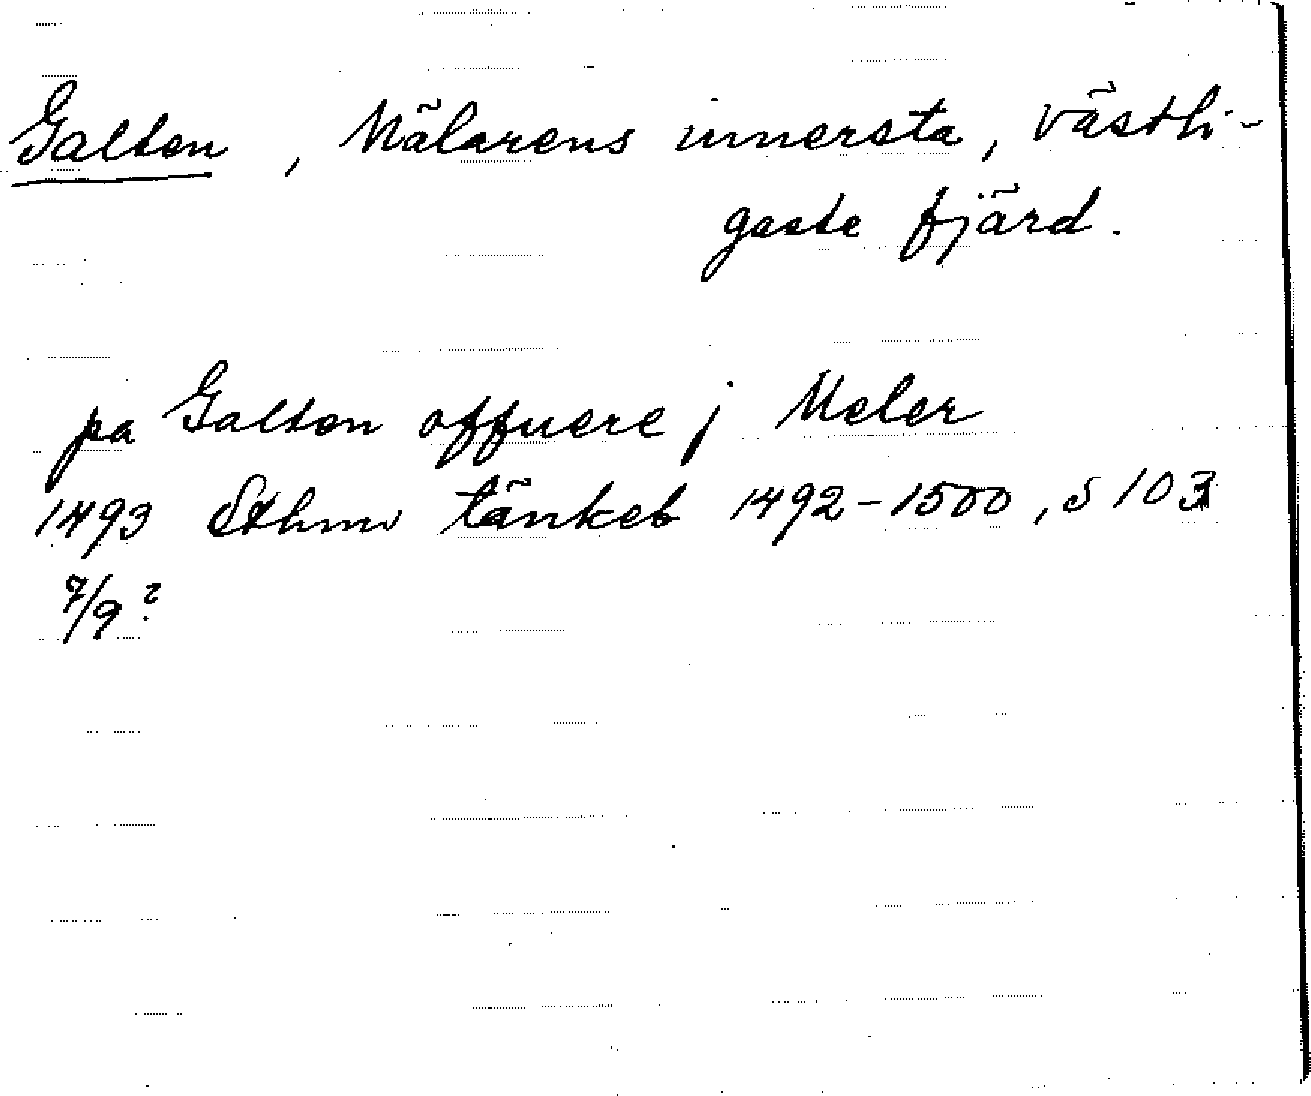 Galten, Mälarens innersta, västli-
gaste fjärd.
pa Galten offuere j Meler
1493 Sthms tänkeb 1492-1500, s 103
7/9?